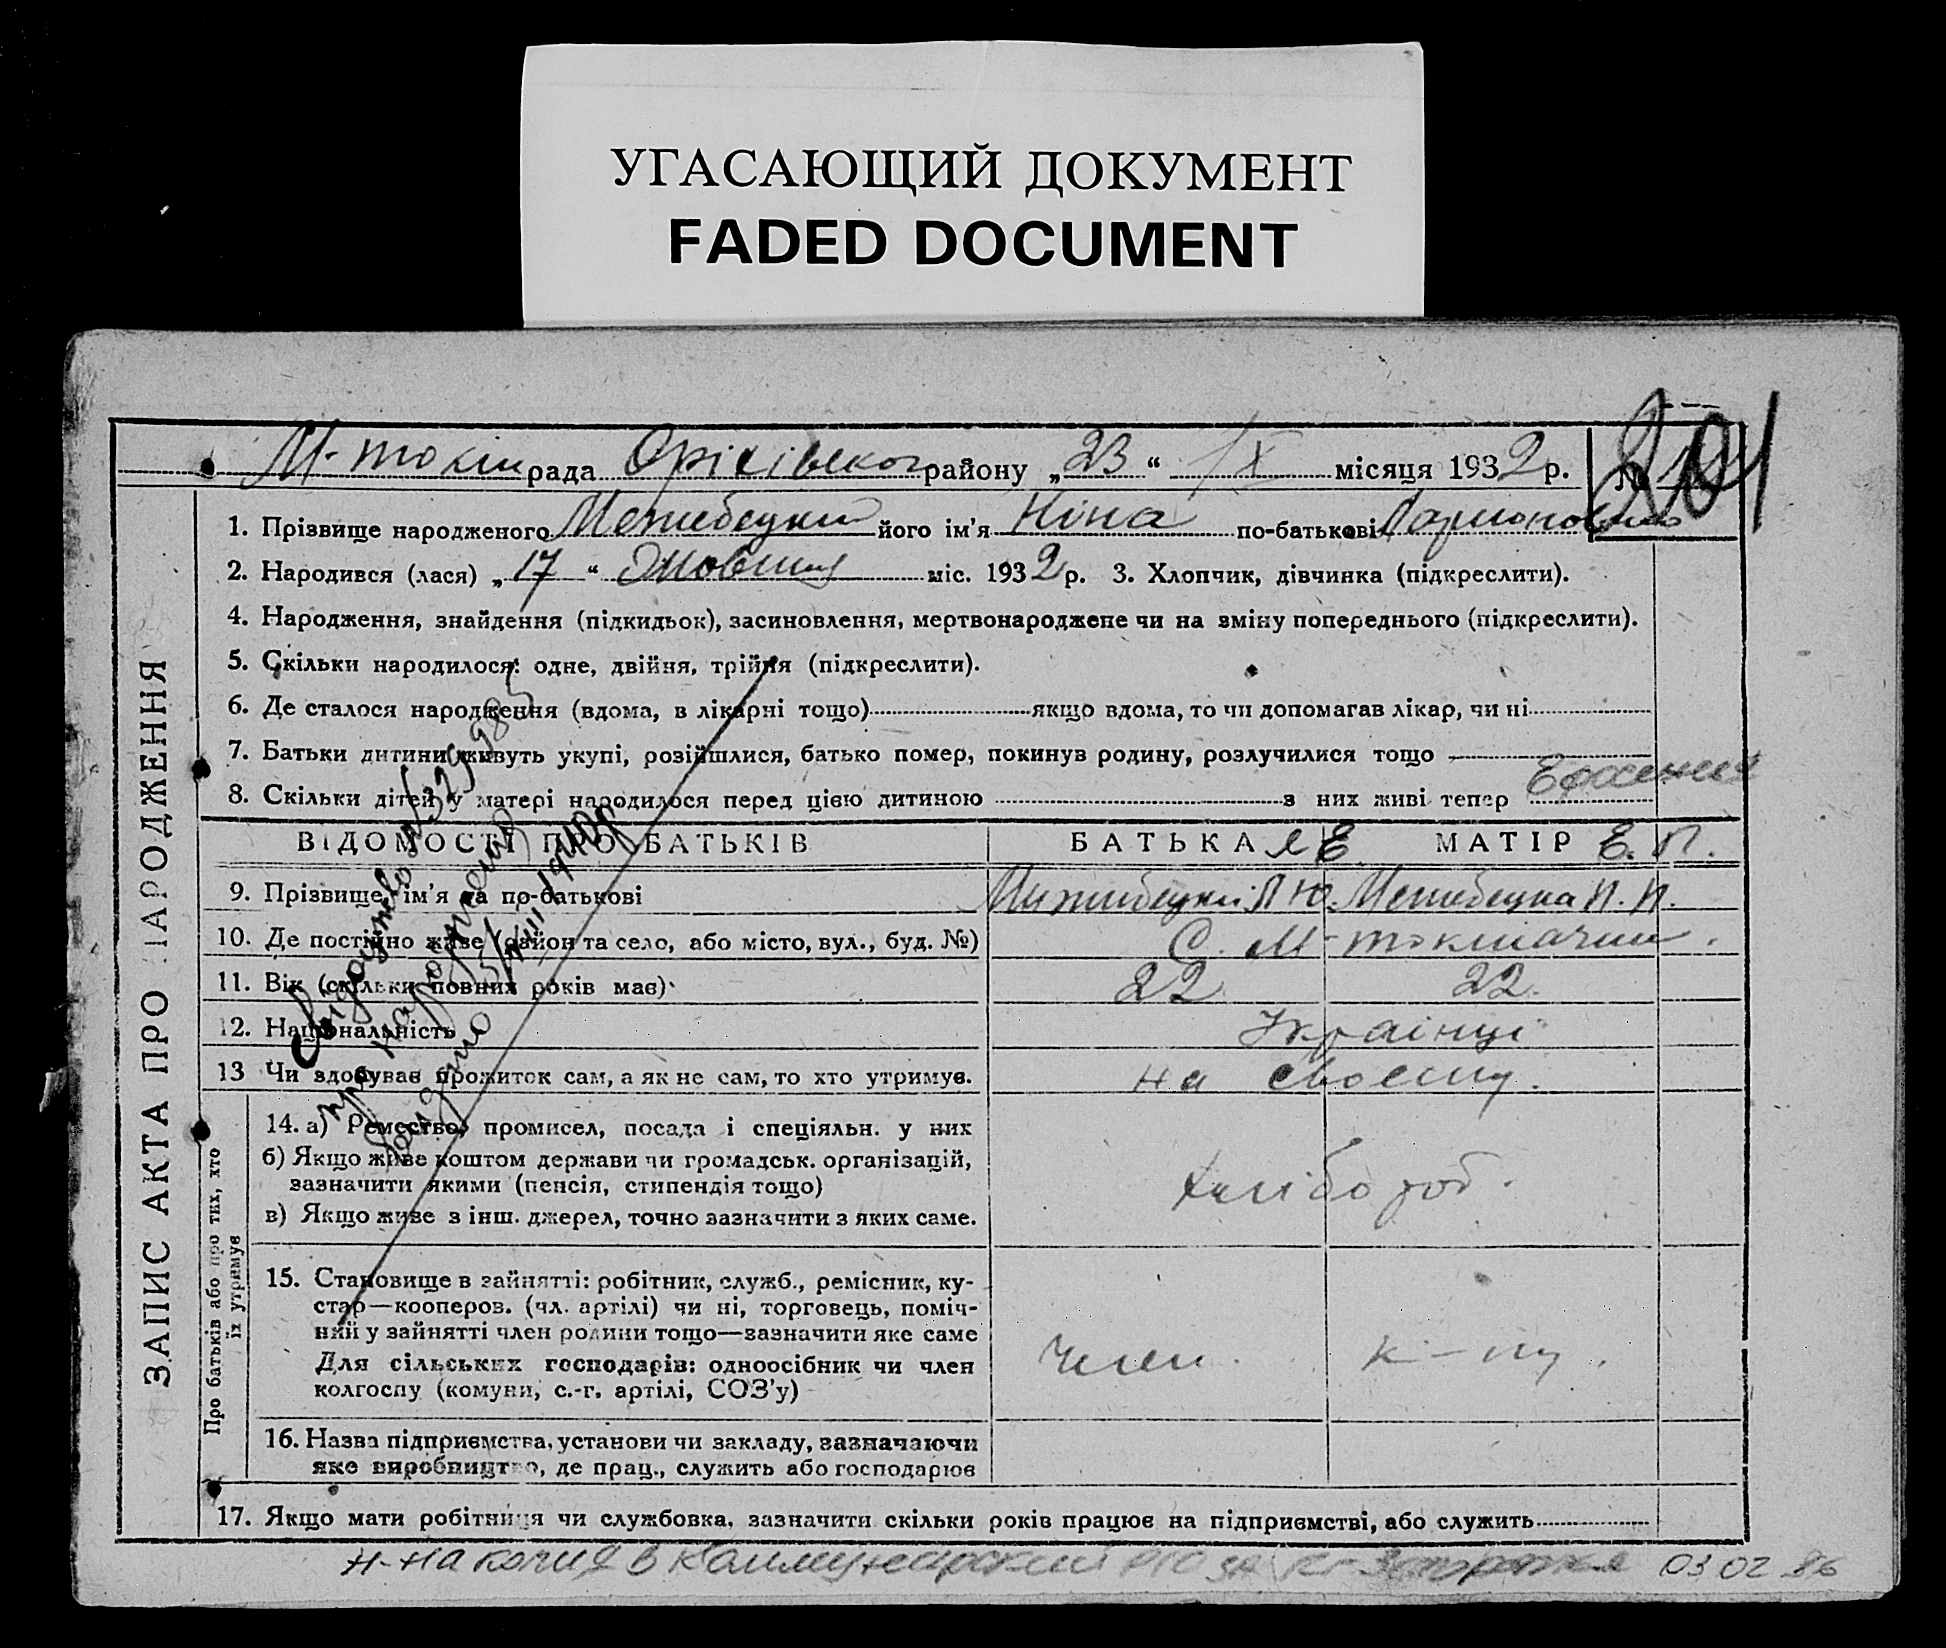 УГАСАЮЩИЙ ДОКУМЕНТ
FADED DOCUMENT
М-токм рада Оріхівськог району „23“ ІХ місяця 1932 р. №
201
ЗАПИС АКТА ПРО НАРОДЖЕННЯ
1. Прізвище народженого його ім'я Ніна по-батькові
2. Народився (лася) „17“ Жовтня міс. 1932 р. 3. Хлопчик, дівчинка (підкреслити).
4. Народження, знайдення (підкидьок), засиновлення, мертвонароджене чи на зміну попереднього (підкреслити).
5. Скільки народилося: одне, двійня, трійня (підкреслити).
6. Де сталося народження (вдома, в лікарні тощо) якщо вдома, то чи допомагав лікар, чи ні
7. Батьки дитини живуть укупі, розійшлися, батько помер, покинув родину, розлучилися тощо
8. Скільки дітей у матері народилося перед цією дитиною з них живі тепер
ВІДОМОСТІ ПРО БАТЬКІВ БАТЬКА МАТІР Е. П.
9. Прізвище, ім'я та по-батькові Межибецка П. П.
10. Де постійно живе (район та село, або місто, вул., буд. №) С. М-токмачци.
11. Вік (скільки повних років має) 22 22.
12. Національність Українці
13 Чи здобував прожиток сам, а як не сам, то хто утримує. на своєму.
Про батьків або про тих, хто
їх утримує
14. а) Ремество, промисел, посада і спеціяльн. у них
б) Якщо живе коштом держави чи громадськ. організацій,
зазначити якими (пенсія, стипендія тощо)
хлібороб.
в) Якщо живе з інш. джерел, точно зазначити з яких саме.
15. Становище в зайнятті: робітник, служб., ремісник, ку-
стар—кооперов. (чл. артілі) чи ні, торговець, поміч-
ний у зайнятті член родини тощо—зазначити яке саме
Для сільських господарів: одноосібник чи член
колгоспу (комуни, с.-г. артілі, СОЗ'у)
Член. к-пу.
16. Назва підприємства, установи чи закладу, зазначаючи
яке виробництво, де прац., служить або господарює
17. Якщо мати робітниця чи службовка, зазначити скільки років працює на підприємстві, або служить
Свідоцтво
про народження
видано 1940р
н-на копия в Коммунарский 03 02 86